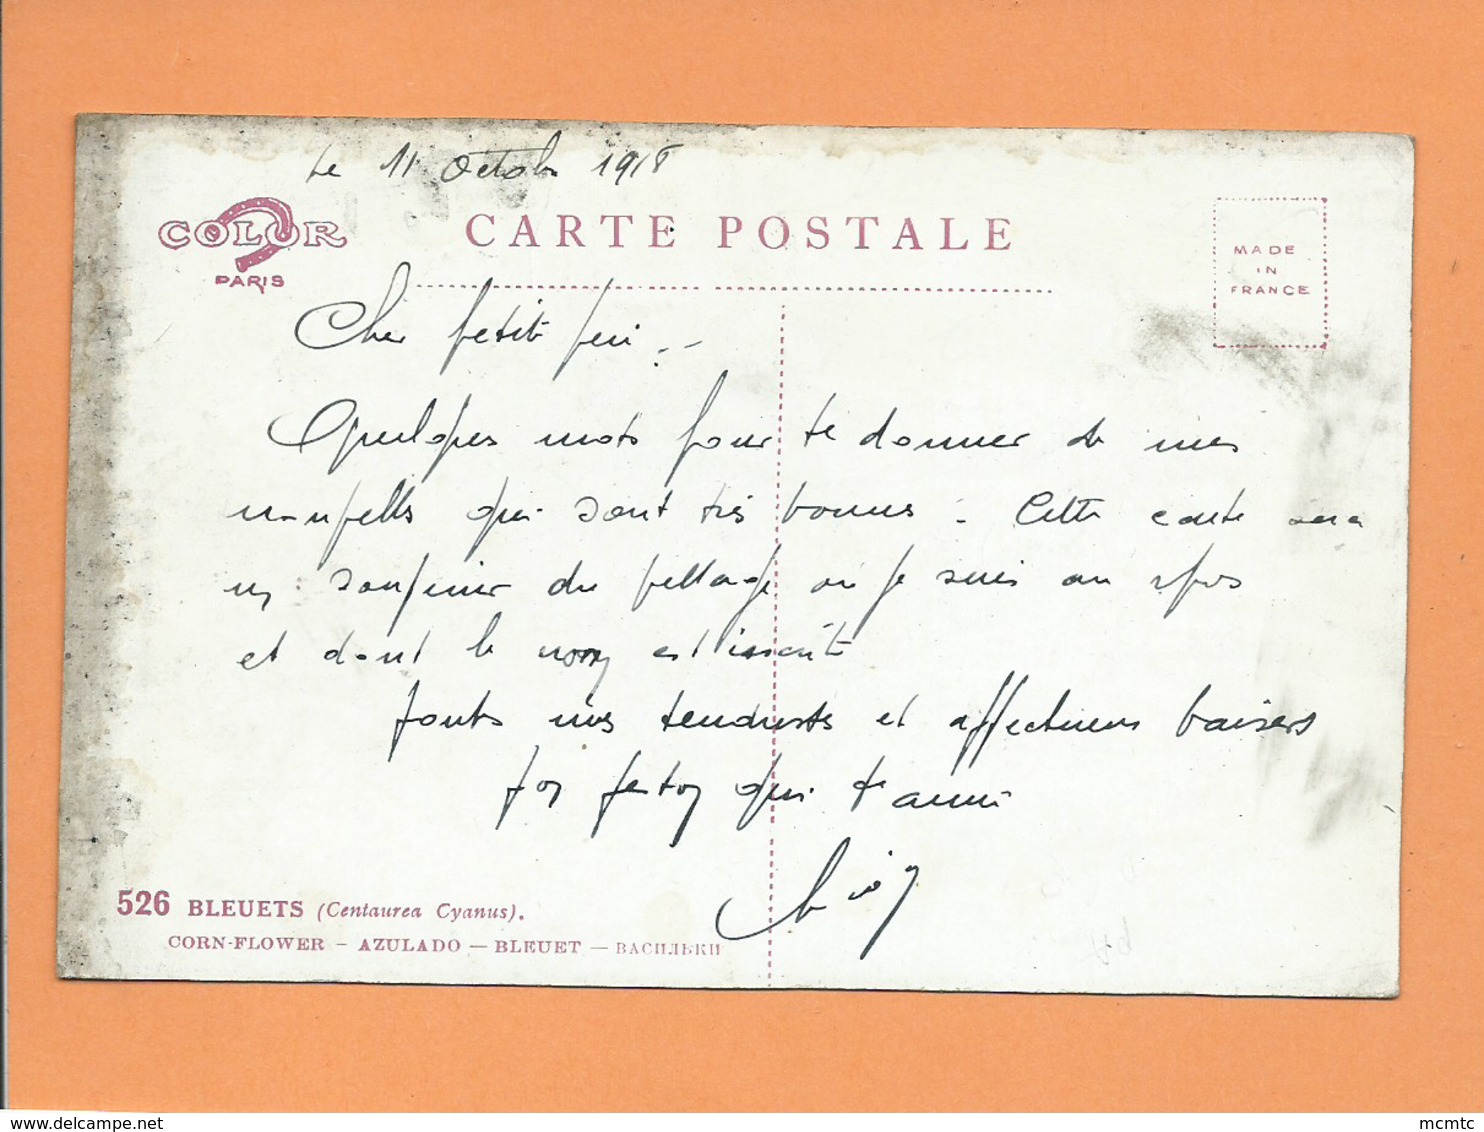 Le 11 Octobre 1918
COLOR
PARIS
CARTE POSTALE
MADE
IN
FRANCE
Cher petit
Quelques mots pour te donner de mes
nouvelles qui sont très bonnes - Cette carte sera
un souvenir du village où je suis au repos
et dont le nom est
toutes mes tendresses et affectueux baisers
Ton qui t'aime
526 BLEUETS (Centaurea Cyanus).
CORN-FLOWER – AZULADO — BLEUET — ВАСИЛЬКИ
delcampe.net
mcmtc